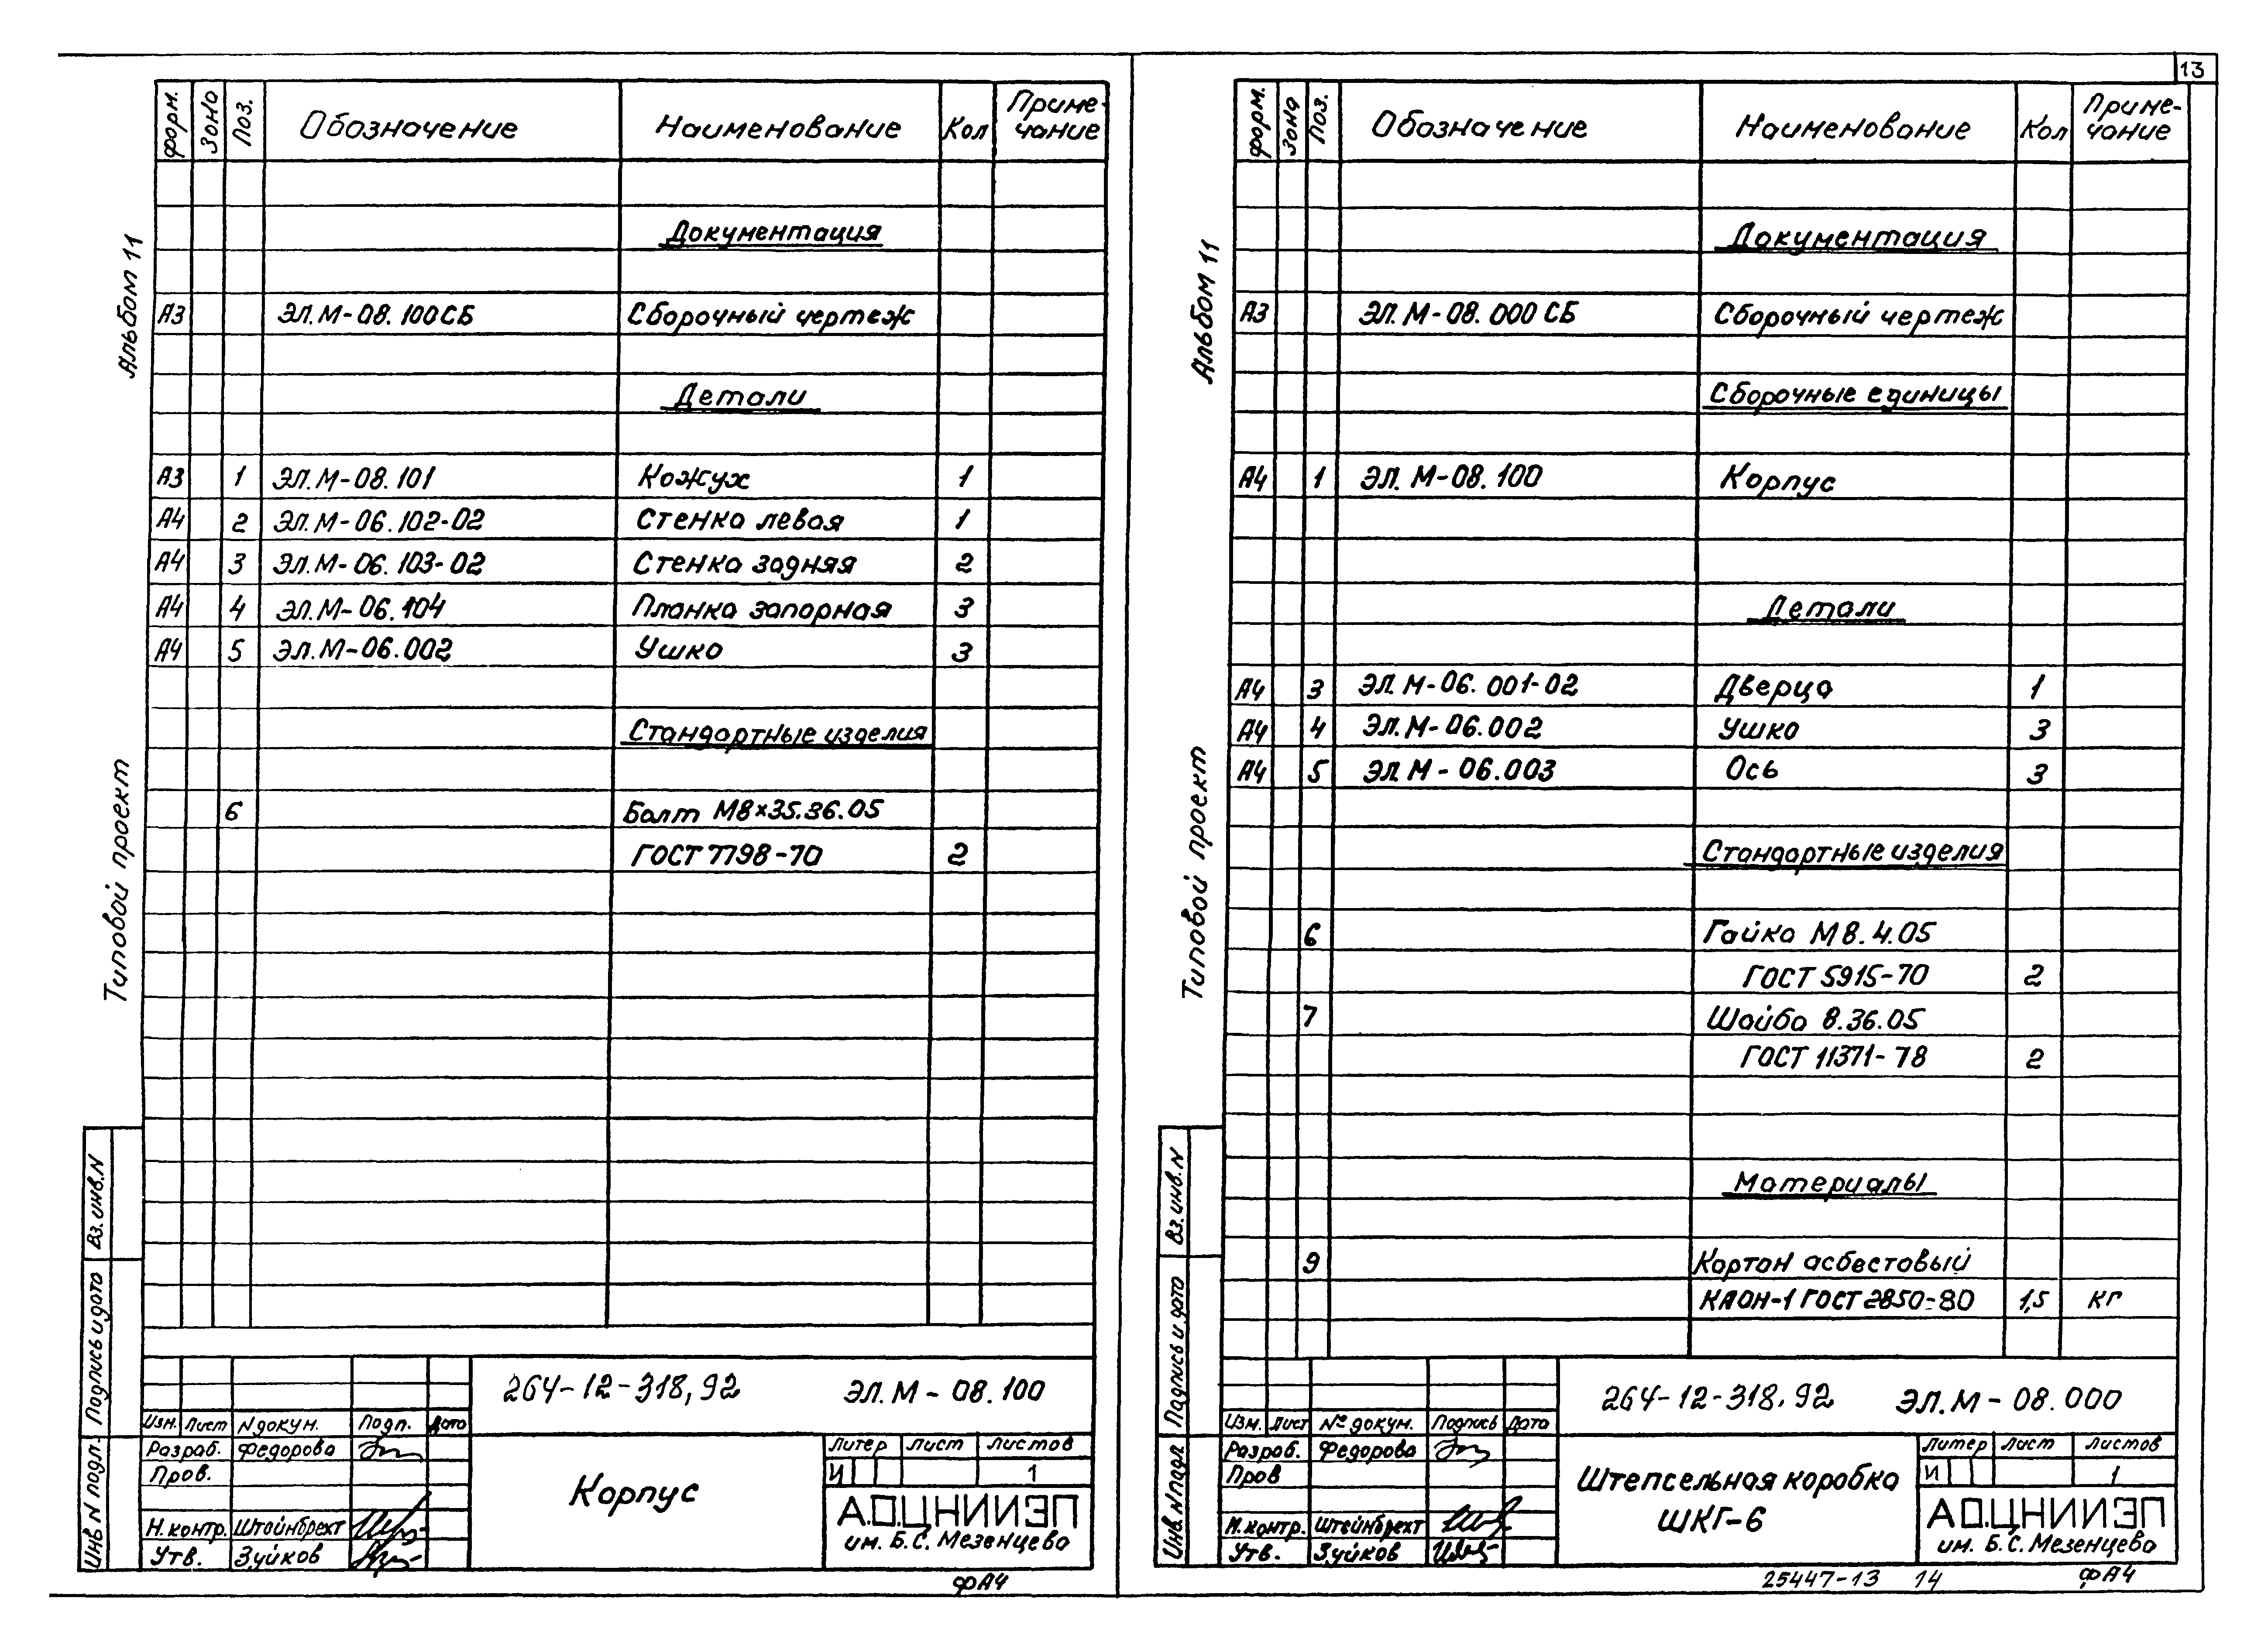 13
Альбом 11
Типовой проект
Форм. Зона Поз. Обозначение Наименование Кол Приме-
чание
Документация
А3 ЭЛ.М-08.100СБ Сборочный чертеж
Детали
А3 1 ЭЛ.М-08.101 Кожух 1
А4 2 ЭЛ.М-06.102-02 Стенка левая 1
А4 3 ЭЛ.М-06.103-02 Стенка задняя 2
А4 4 ЭЛ.М-06.104 Планка запорная 3
А4 5 ЭЛ.М-06.002 Ушко 3
Стандартные изделия
6 Болт М8×35.36.05
ГОСТ 7798-70 2
Вз. инв. N
Подпись и дата
Инв N подл.
264-12-318,92 ЭЛ.М-08.100
Изм. Лист N докум. Подп. Дата
Разраб. Федорова
Пров.
Н.контр. Штейнбрехт
Утв. Зуйков
Корпус
Литер Лист Листов
И 1
А.О.ЦНИИЭП
им. Б.С. Мезенцева
ФА4
Альбом 11
Типовой проект
Форм. Зона Поз. Обозначение Наименование Кол Приме-
чание
Документация
А3 ЭЛ.М-08.000 СБ Сборочный чертеж
Сборочные единицы
А4 1 ЭЛ.М-08.100 Корпус
Детали
А4 3 ЭЛ.М-06.001-02 Дверца 1
А4 4 ЭЛ.М-06.002 Ушко 3
А4 5 ЭЛ.М-06.003 Ось 3
Стандартные изделия
6 Гайка М8.4.05
ГОСТ 5915-70 2
7 Шайба 8.36.05
ГОСТ 11371-78 2
Материалы
9 Картон асбестовый
КАОН-1 ГОСТ 2850-80 1,5 кг
Вз. инв. N
Подпись и дата
Инв. N подл.
264-12-318,92 ЭЛ.М-08.000
Изм. Лист № докум. Подпись Дата
Разраб. Федорова
Пров
Н.контр. Штейнбрехт
Утв. Зуйков
Штепсельная коробка
ШКГ-6
Литер Лист Листов
И 1
А.О.ЦНИИЭП
им. Б.С. Мезенцева
25447-13 14 ФА4